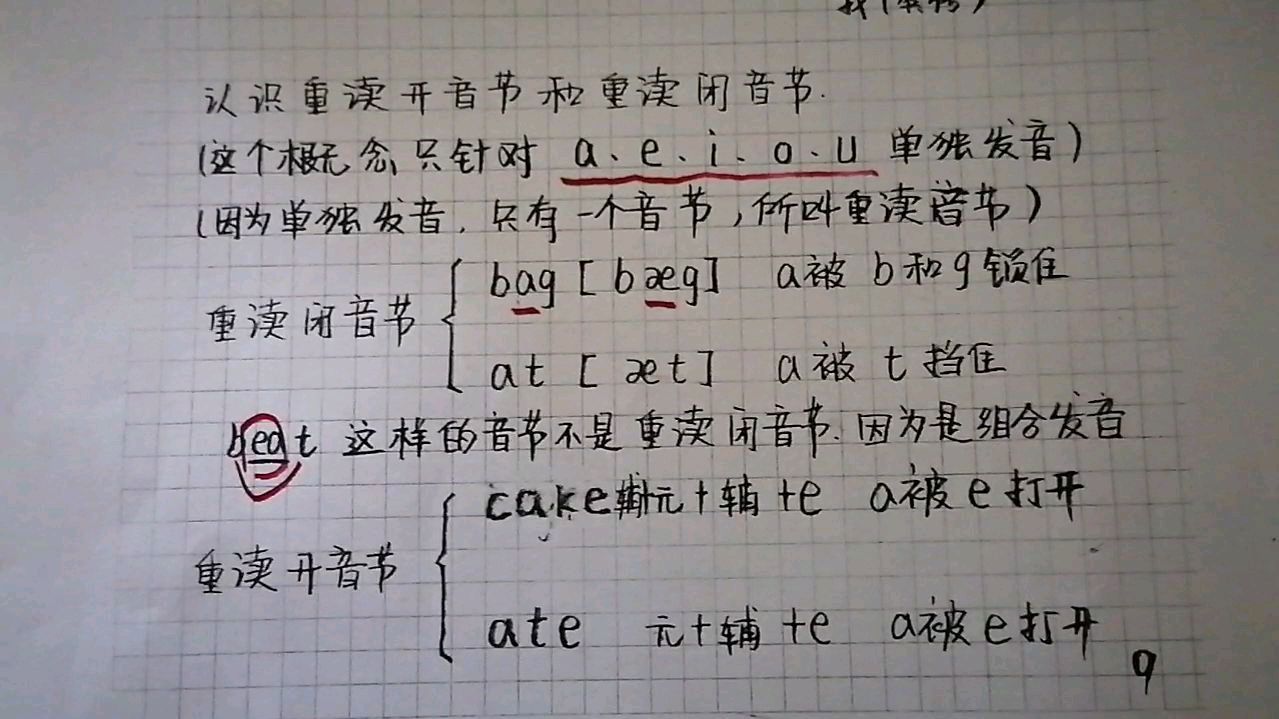 认识重读开音节和重读闭音节.
(这个概念只针对 a、e、i、o、u 单独发音)
(因为单独发音,只有一个音节,所以叫重读音节)
bag [bæg] a被 b和g锁住
重读闭音节
at [æt] a被 t 挡住
beat 这样的音节不是重读闭音节.因为是组合发音
cake 辅+元+辅+e a被e打开
重读开音节
ate 元+辅+e a被e打开
9